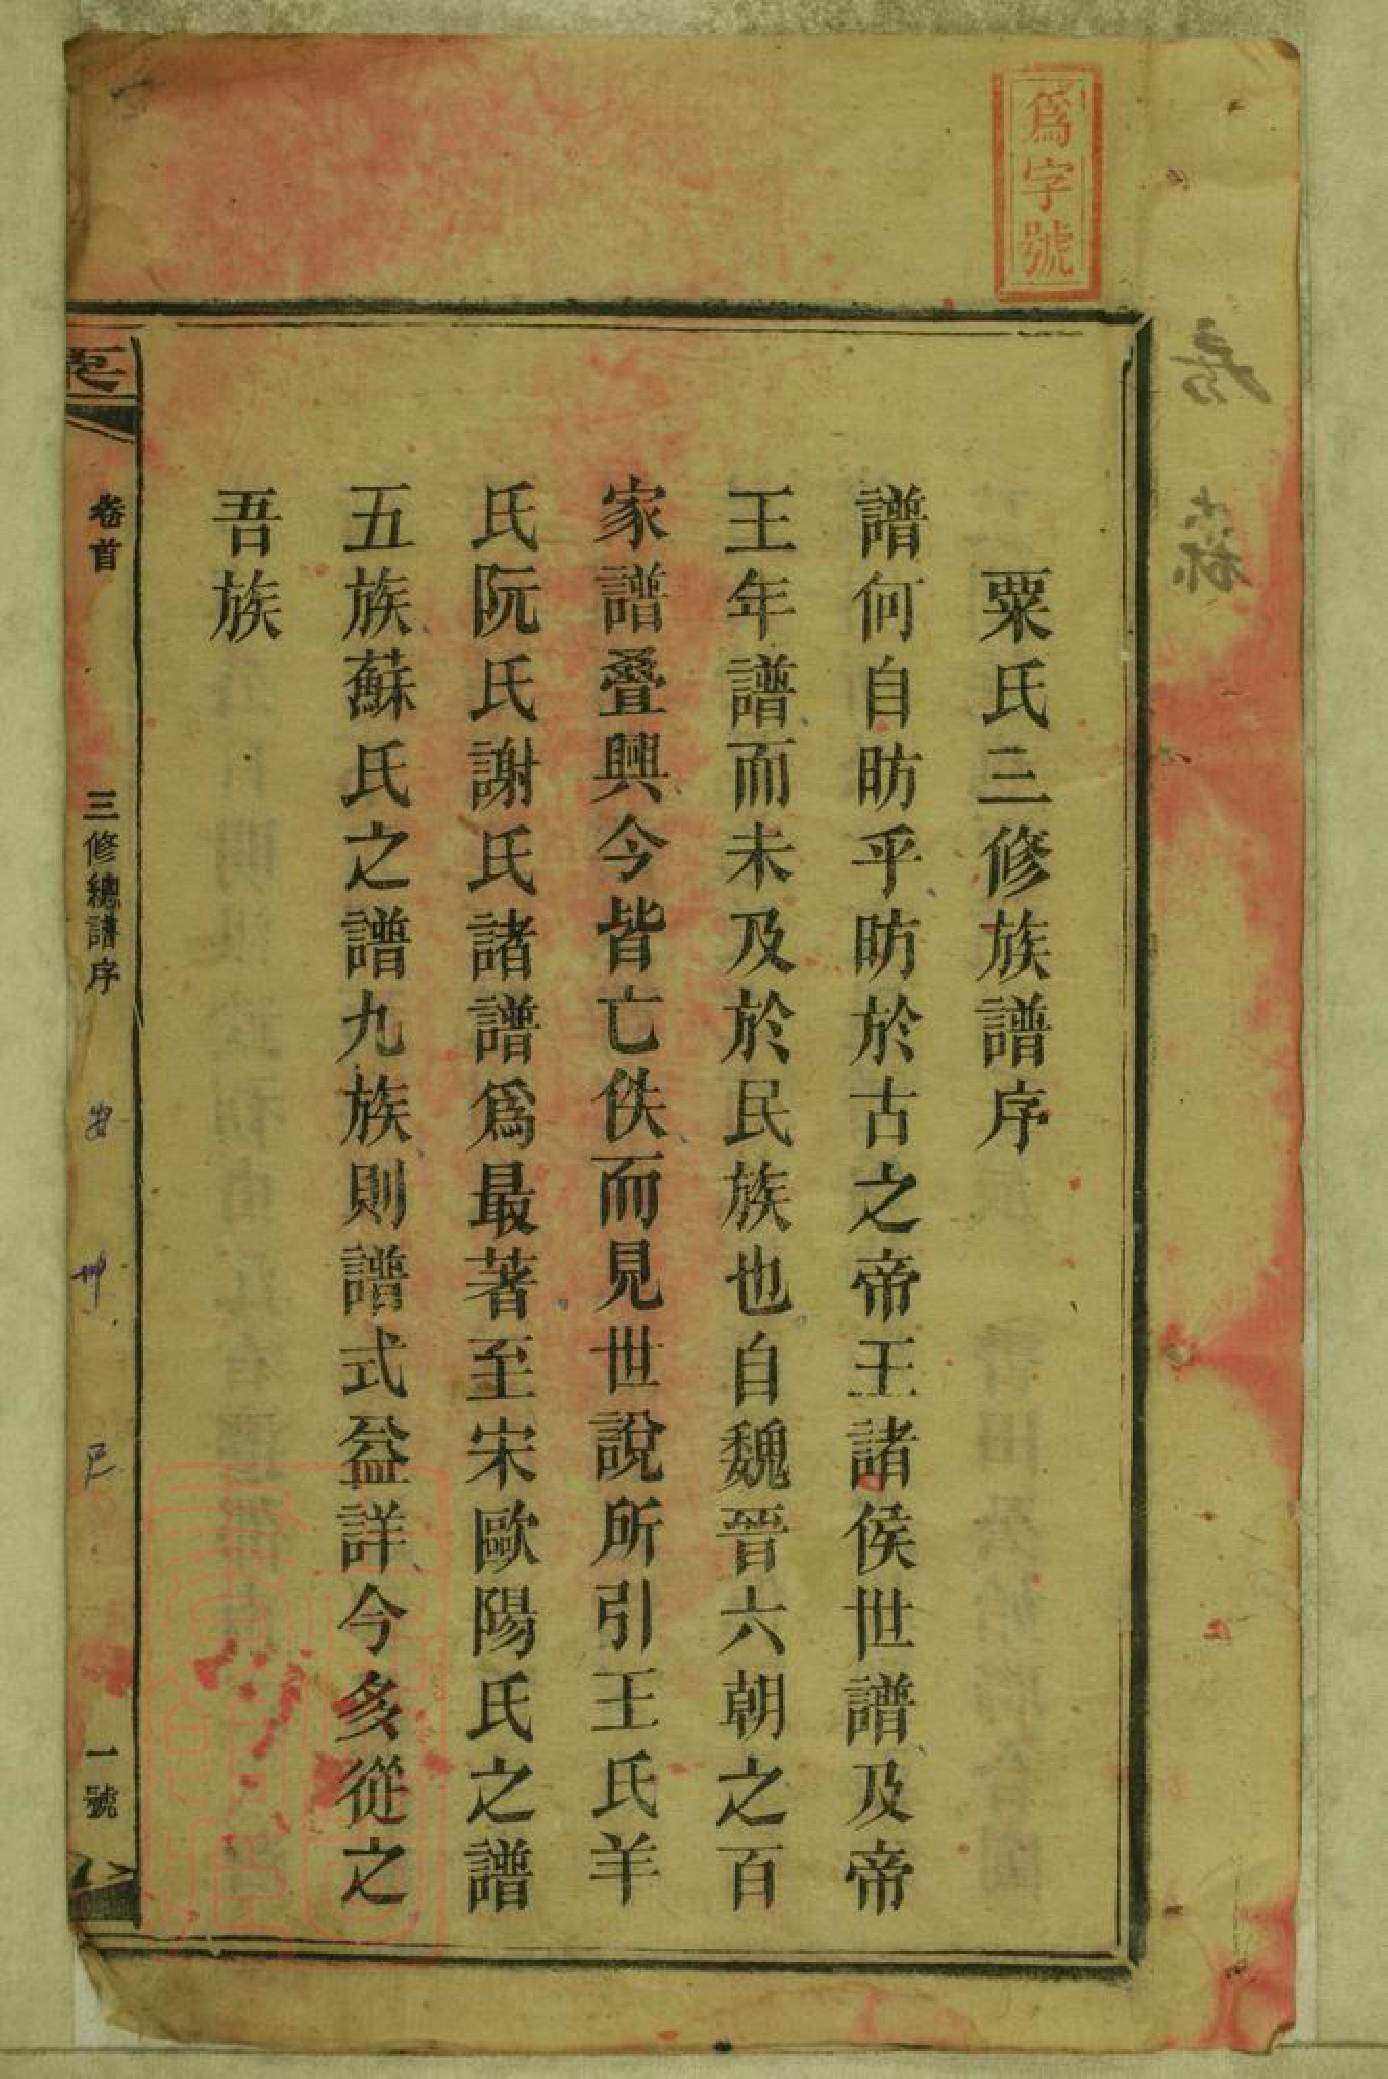 爲字號
粟氏三修族譜序
譜何自昉乎昉於古之帝王諸侯世譜及帝
王年譜而未及於民族也自魏晉六朝之百
家譜疊興今皆亡佚而見世說所引王氏羊
氏阮氏謝氏諸譜爲最著至宋歐陽氏之譜
五族蘇氏之譜九族則譜式益詳今多從之
吾族
卷首
三修總譜序
一號